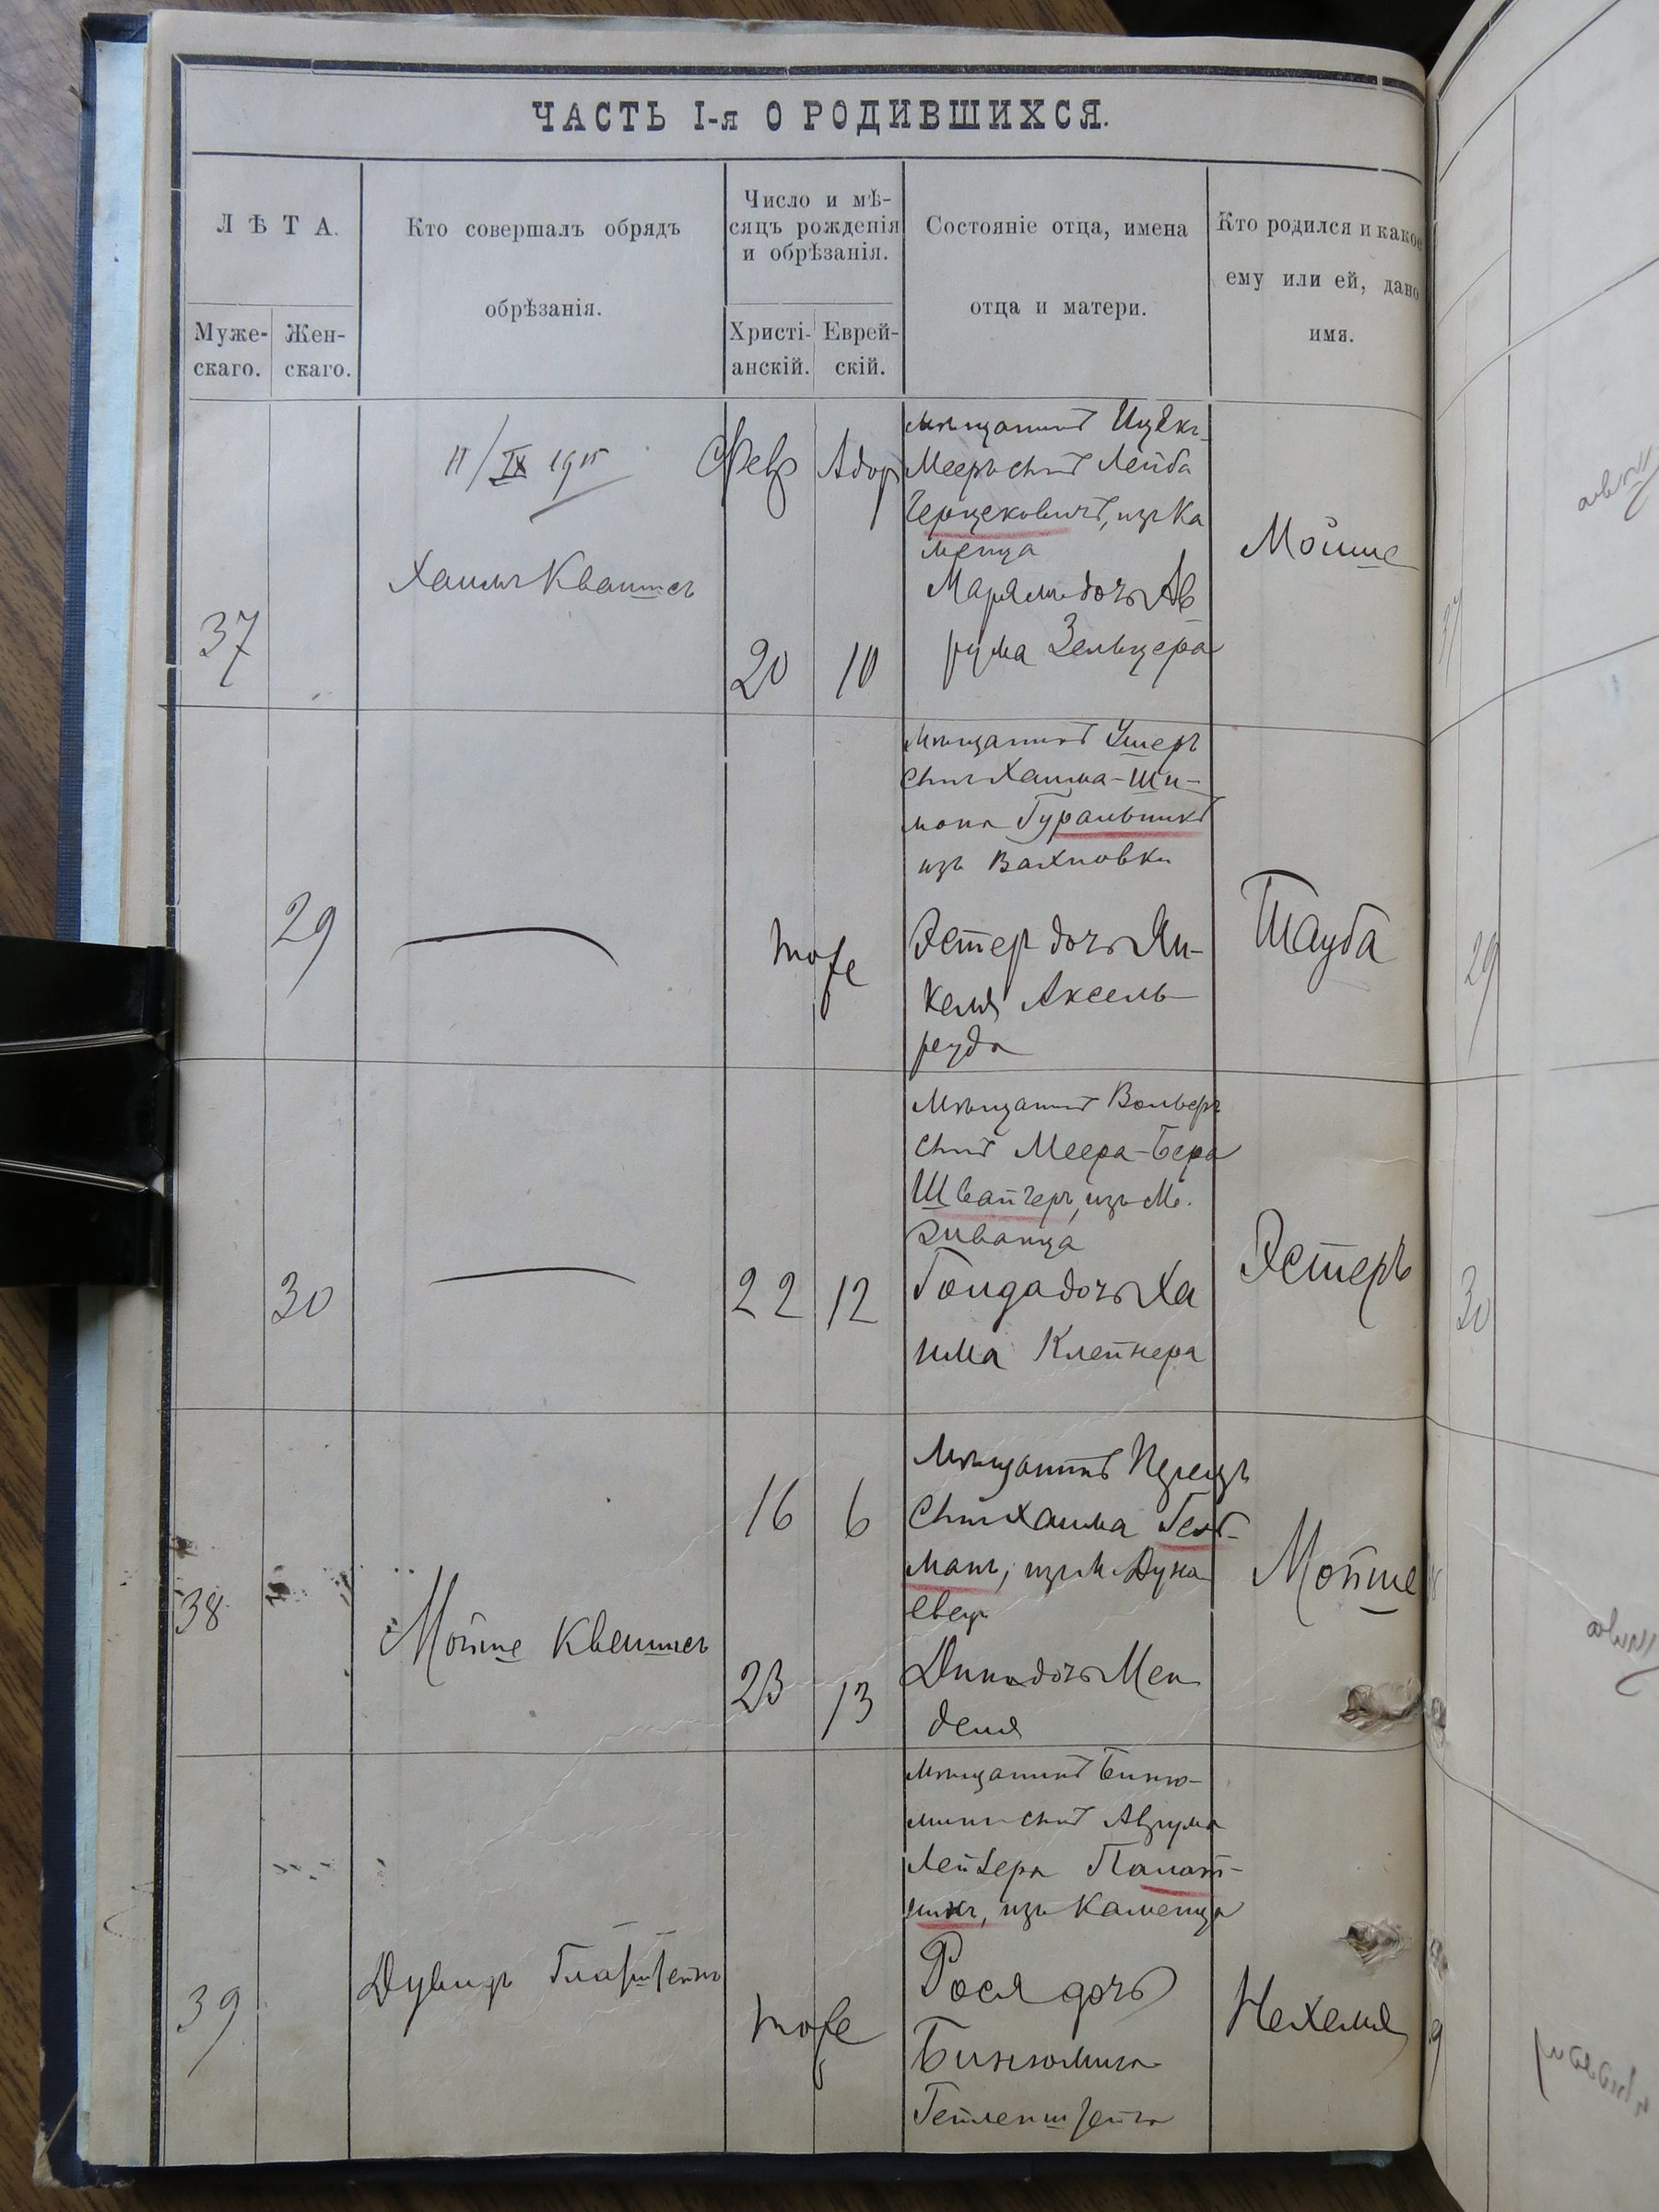 ЧАСТЬ I-я О РОДИВШИХСЯ.
ЛѢТА.
Муже-
скаго.
Жен-
скаго.
Кто совершалъ обрядъ
обрѣзанія.
Число и мѣ-
сяцъ рожденія
и обрѣзанія.
Христі-
анскій.
Еврей-
скій.
Состояніе отца, имена
отца и матери.
Кто родился и какое
ему или ей, дано
имя.
37
11/IX 1915
Хаимъ Квашисъ
Февр
20
Адор
10
мѣщанинъ Ицекъ-
Мееръ сынъ Лейба
Герцековичъ, изъ Ка
менца
Марямъ дочь Ав
рума Зельцера
Мойше
29
тоже
мѣщанинъ Ушеръ
сынъ Хаима-Ши-
мона Гуральникъ
изъ Вахновки
Эстер дочь Ян-
келя Аксель-
руда
Тауба
30
22
12
мѣщанинъ Вольверъ
сынъ Меера-Бера
Швайгеръ, изъ м.
Голда дочь Ха
има Клейнера
Эстеръ
38
Мойше Квешисъ
16
6
23
13
мѣщанинъ
сынъ Хаима Гельб-
манъ, изъ м Дуна
евец
дочь Мен
деля
Мойше
39
Дувидъ
тоже
мѣщанинъ Биню-
минъ сынъ Аврума
Лейзера Палат-
никъ, изъ Каменца
Рося дочь
Бинюмина
Нехемія
29
30